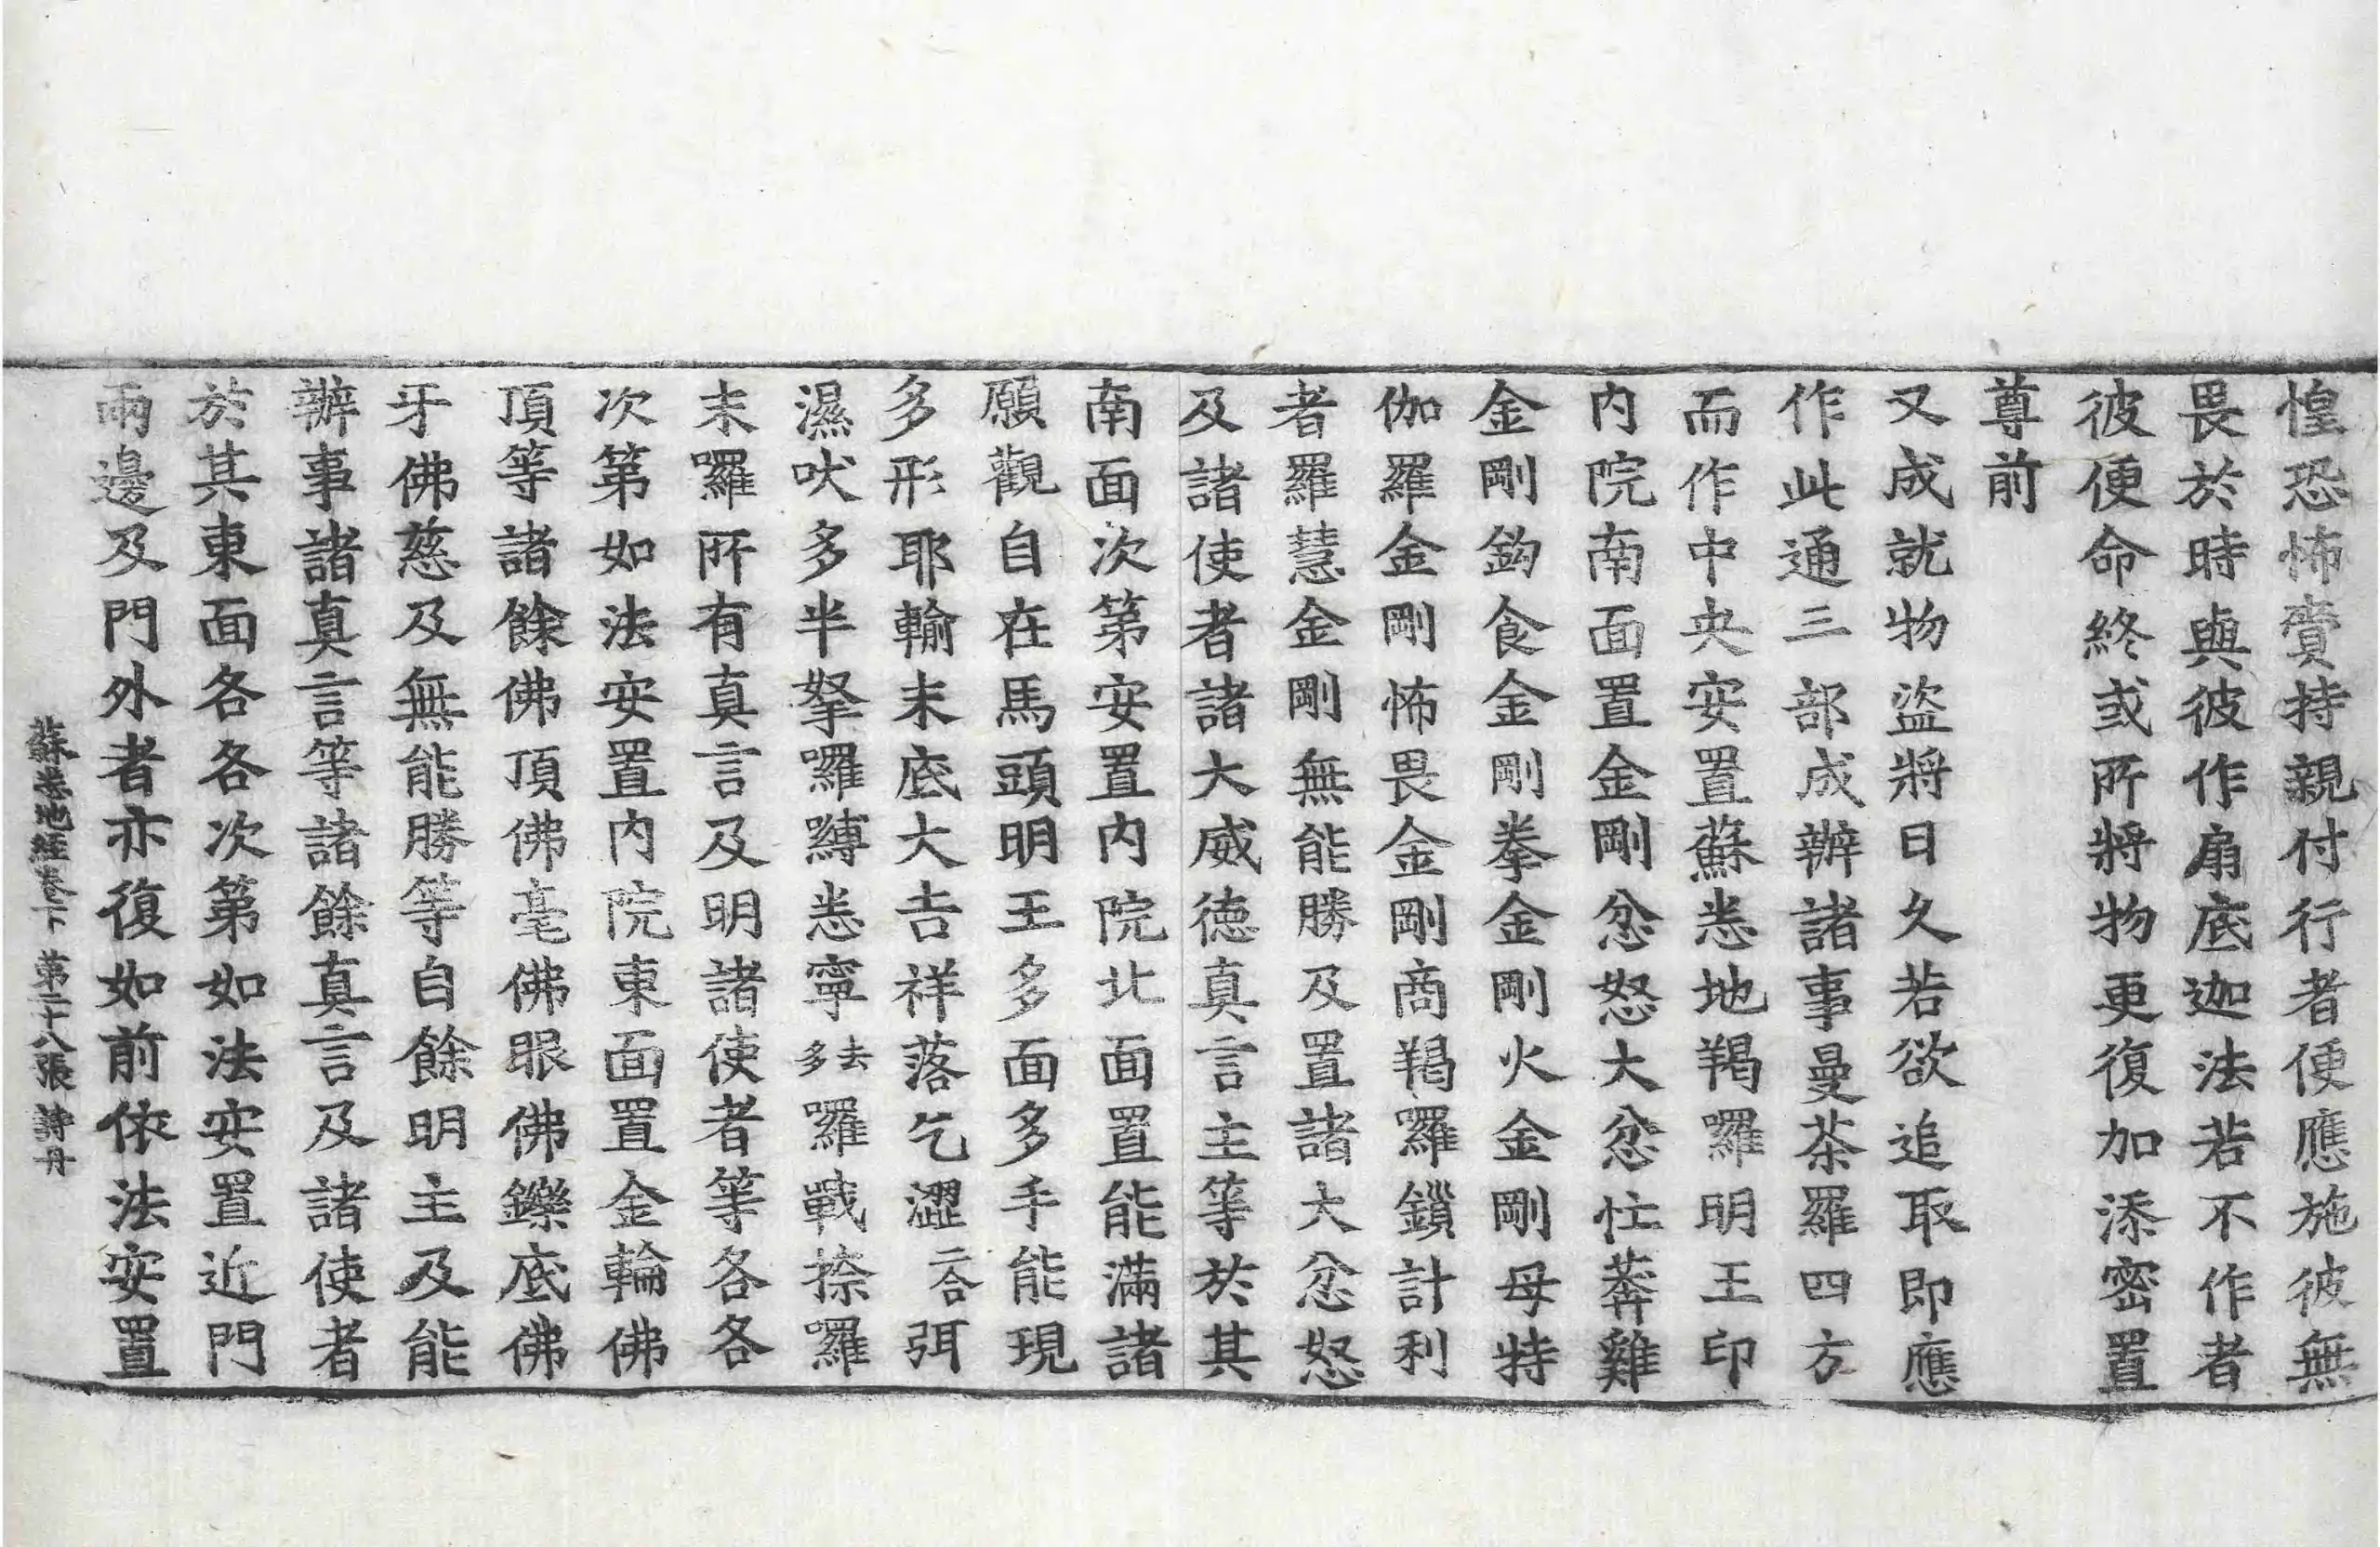 惶恐怖賷持親付行者便應施彼無
畏於時與彼作扇底迦法若不作者
彼便命終或所將物更復加添密置
尊前
又成就物盜將日久若欲追取即應
作此通三部成辦諸事曼荼羅四方
而作中央安置蘇悉地羯囉明王印
内院南面置金剛忿怒大忿忙莾雞
金剛鈎食金剛拳金剛火金剛母特
伽羅金剛怖畏金剛商羯羅鎻計利
者羅慧金剛無能勝及置諸大忿怒
及諸使者諸大威德真言主等於其
南面次第安置内院北面置能滿諸
願觀自在馬頭明王多面多手能現
多形耶輸末底大吉祥落乞澀二合弭
濕吠多半拏囉嚩悉寧去多羅戰捺囉
末囉所有真言及明諸使者等各各
次第如法安置内院東面置金輪佛
頂等諸餘佛頂佛毫佛眼佛鑠底佛
牙佛慈及無能勝等自餘明主及能
辦事諸真言等諸餘真言及諸使者
於其東面各各次第如法安置近門
兩邊及門外者亦復如前依法安置
蘇悉地經卷下 第二十八張 詩丹